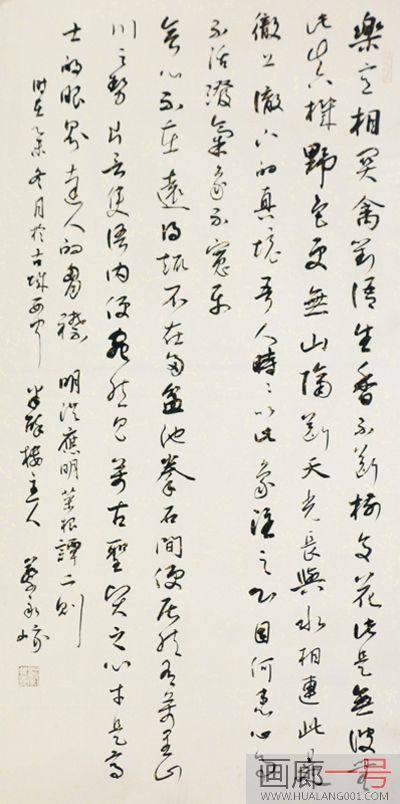 樂意相関禽對語生香不斷樹交花此是無彼無
此真機野色更無山隔斷天光長與水相連此是
徹上徹下的真境吾人時々以此象注之心目何患心思
不活潑氣象不寬平
會心不在遠得趣不在多盆池拳石間便居然有萬里山
川之勢片言隻語内便宛然見萬古聖賢之心才是高
士的眼界達人的胸襟 明洪應明菜根譚二則
時在冬月於古城西 樓主人
画廊一号
WWW.HUALANG001.COM